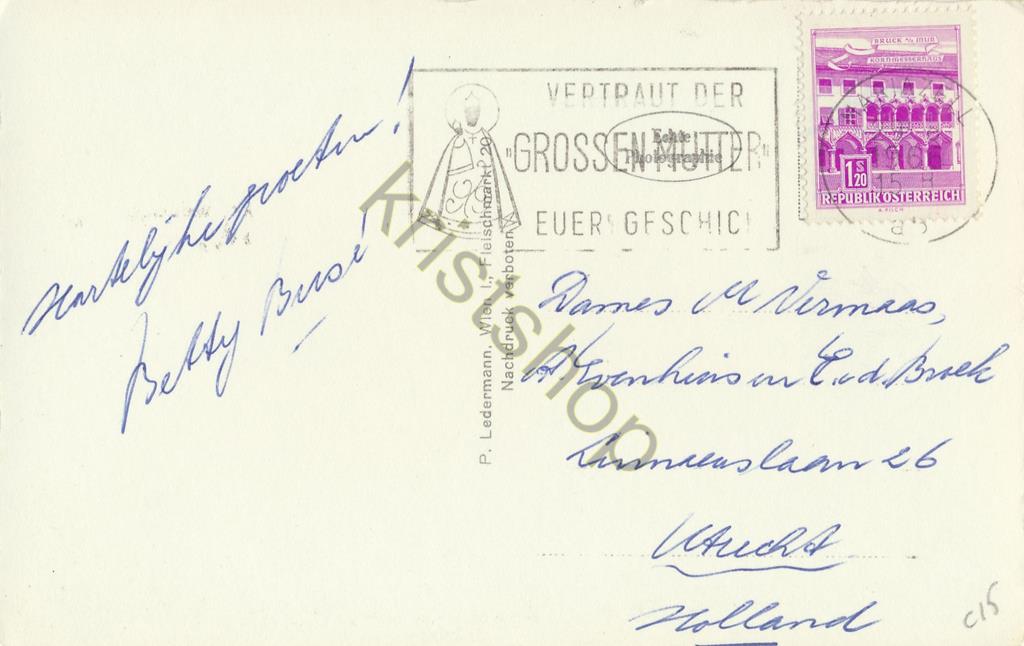 Hartelijke groeten!
Betty Busé!
VERTRAUT DER
"GROSSEN MUTTER"
EUER GESCHICK
Echte
Photographie
BRUCK a/d MUR
KORNMESSERHAUS
1 S 20
REPUBLIK ÖSTERREICH
15 H
P. Ledermann, Wien I., Fleischmarkt 20
Nachdruck verboten
Kristshop
Dames M Vermaas,
A. Evenhuis en E.v.d. Broek
Linnaeuslaan 26
Utrecht
Holland
C15